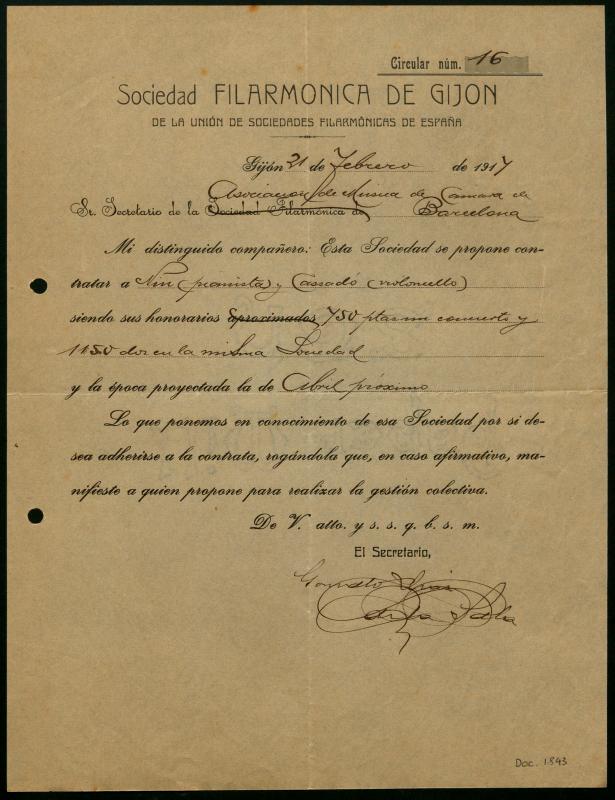 Circular núm. 16
Sociedad FILARMONICA DE GIJON
DE LA UNIÓN DE SOCIEDADES FILARMÓNICAS DE ESPAÑA
Gijón 21 de Febrero de 1917
Asociacion de Musica de Camara de
Sr. Secretario de la Sociedad Filarmónica de Barcelona
Mi distinguido compañero: Esta Sociedad se propone con-
tratar a Nin (pianista) y Cassadó (violoncello)
siendo sus honorarios aproximados 750 ptas un concierto y
1150 dos en la misma Sociedad
y la época proyectada la de Abril próximo
Lo que ponemos en conocimiento de esa Sociedad por si de-
sea adherirse a la contrata, rogándola que, en caso afirmativo, ma-
nifieste a quien propone para realizar la gestión colectiva.
De V. atto. y s. s. q. b. s. m.
El Secretario,
Doc. 1.843